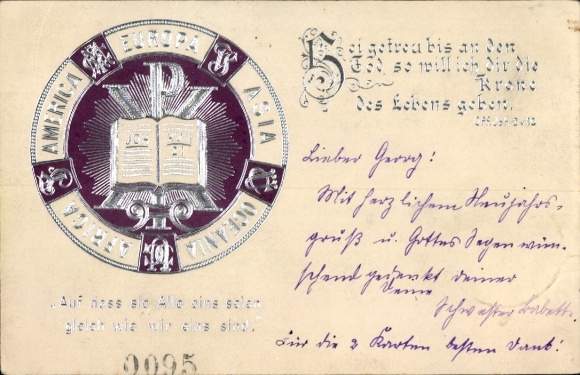 EUROPA
ASIA
OCEANIA
AFRICA
AMERICA
Sei getreu bis an den
Tod, so will ich dir die
Krone
des Lebens geben.
Lieber Georg!
Mit herzlichem Neujahrs-
gruß u. Gottes Segen wün-
schend gedenkt deiner
Deine
Schwester Babett.
Für die 2 Karten besten Dank!
„Auf dass sie Alle eins seien
gleich wie wir eins sind."
0095